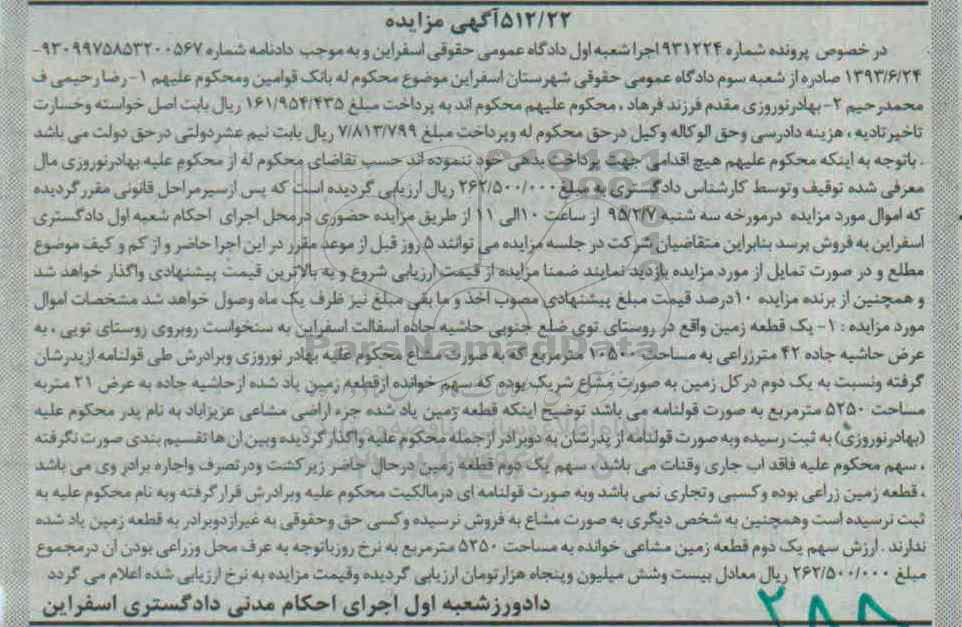 ۵۱۲/۲۲آگهی مزایده
در خصوص پرونده شماره ۹۳۱۲۲۴ اجرا شعبه اول دادگاه عمومی حقوقی اسفراین و به موجب دادنامه شماره ۹۳۰۹۹۷۵۸۵۳۲۰۰۵۶۷-
۱۳۹۳/۶/۲۴ صادره از شعبه سوم دادگاه عمومی حقوقی شهرستان اسفراین موضوع محکوم له بانک قوامین ومحکوم علیهم ۱- رضا رحیمی ف
محمدرحیم ۲- بهادرنوروزی مقدم فرزند فرهاد ، محکوم علیهم محکوم اند به پرداخت مبلغ ۱۶۱/۹۵۴/۴۳۵ ریال بابت اصل خواسته وخسارت
تاخیرتادیه ، هزینه دادرسی وحق الوکاله وکیل درحق محکوم له وپرداخت مبلغ ۷/۸۱۳/۷۹۹ ریال بابت نیم عشردولتی درحق دولت می باشد
. باتوجه به اینکه محکوم علیهم هیچ اقدامی جهت پرداخت بدهی خود ننموده اند حسب تقاضای محکوم له از محکوم علیه بهادرنوروزی مال
معرفی شده توقیف وتوسط کارشناس دادگستری به مبلغ ۲۶۲/۵۰۰/۰۰۰ ریال ارزیابی گردیده است که پس ازسیرمراحل قانونی مقررگردیده
که اموال مورد مزایده درمورخه سه شنبه ۹۵/۲/۷ از ساعت ۱۰الی ۱۱ از طریق مزایده حضوری درمحل اجرای احکام شعبه اول دادگستری
اسفراین به فروش برسد بنابراین متقاضیان شرکت در جلسه مزایده می توانند ۵ روز قبل از موعد مقرر در این اجرا حاضر و از کم و کیف موضوع
مطلع و در صورت تمایل از مورد مزایده بازدید نمایند ضمنا مزایده از قیمت ارزیابی شروع و به بالاترین قیمت پیشنهادی واگذار خواهد شد
و همچنین از برنده مزایده ۱۰درصد قیمت مبلغ پیشنهادی مصوب اخذ و ما بقی مبلغ نیز ظرف یک ماه وصول خواهد شد مشخصات اموال
مورد مزایده : ۱- یک قطعه زمین واقع در روستای توی ضلع جنوبی حاشیه جاده اسفالت اسفراین به سنخواست روبروی روستای تویی ، به
عرض حاشیه جاده ۴۲ مترزراعی به مساحت ۱۰۵۰۰ مترمربع که به صورت مشاع محکوم علیه بهادر نوروزی وبرادرش طی قولنامه ازپدرشان
گرفته ونسبت به یک دوم درکل زمین به صورت مشاع شریک بوده که سهم خوانده ازقطعه زمین یاد شده ازحاشیه جاده به عرض ۲۱ متربه
مساحت ۵۲۵۰ مترمربع به صورت قولنامه می باشد توضیح اینکه قطعه زمین یاد شده جزء اراضی مشاعی عزیزاباد به نام پدر محکوم علیه
(بهادرنوروزی) به ثبت رسیده وبه صورت قولنامه از پدرشان به دوبرادر ازجمله محکوم علیه واگذارگردیده وبین ان ها تقسیم بندی صورت نگرفته
، سهم محکوم علیه فاقد اب جاری وقنات می باشد ، سهم یک دوم قطعه زمین درحال حاضر زیرکشت ودرتصرف واجاره برادر وی می باشد
، قطعه زمین زراعی بوده وکسبی وتجاری نمی باشد وبه صورت قولنامه ای درمالکیت محکوم علیه وبرادرش قرارگرفته وبه نام محکوم علیه به
ثبت نرسیده است وهمچنین به شخص دیگری به صورت مشاع به فروش نرسیده وکسی حق وحقوقی به غیرازدوبرادر به قطعه زمین یاد شده
ندارند . ارزش سهم یک دوم قطعه زمین مشاعی خوانده به مساحت ۵۲۵۰ مترمربع به نرخ روزباتوجه به عرف محل وزراعی بودن ان درمجموع
مبلغ ۲۶۲/۵۰۰/۰۰۰ ریال معادل بیست وشش میلیون وپنجاه هزارتومان ارزیابی گردیده وقیمت مزایده به نرخ ارزیابی شده اعلام می گردد
دادورزشعبه اول اجرای احکام مدنی دادگستری اسفراین
۲۸۸
ParsNamadData